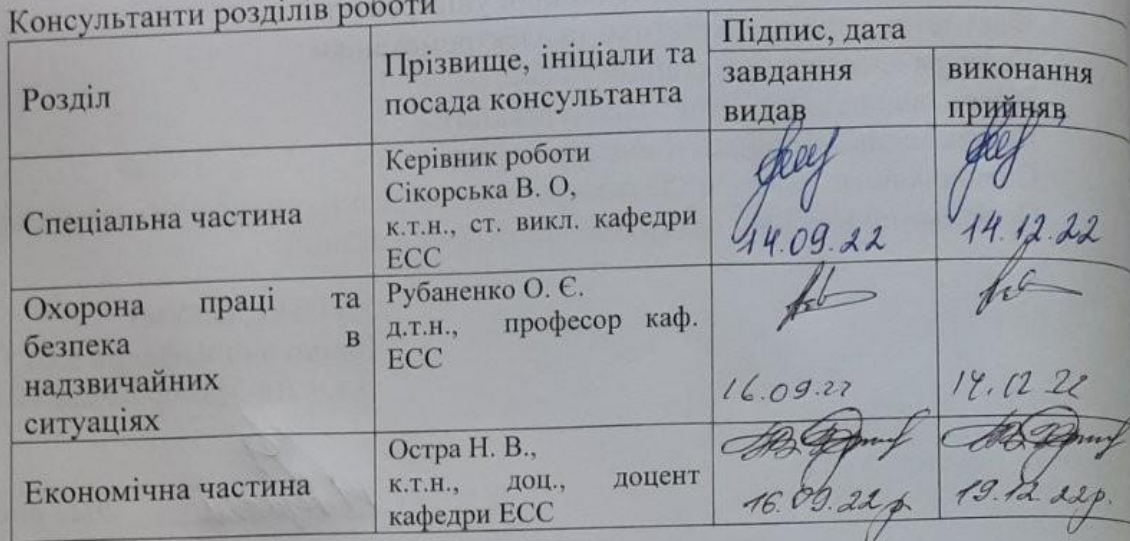 Консультанти розділів роботи
Розділ
Прізвище, ініціали та
посада консультанта
Підпис, дата
завдання
видав
виконання
прийняв
Спеціальна частина
Керівник роботи
Сікорська В. О,
к.т.н., ст. викл. кафедри
ЕСС
14.09.22
14.12.22
Охорона праці та
безпека в
надзвичайних
ситуаціях
Рубаненко О. Є.
д.т.н., професор каф.
ЕСС
16.09.22
14.12 22
Економічна частина
Остра Н. В.,
к.т.н., доц., доцент
кафедри ЕСС
16.09.22р
19.12.22р.